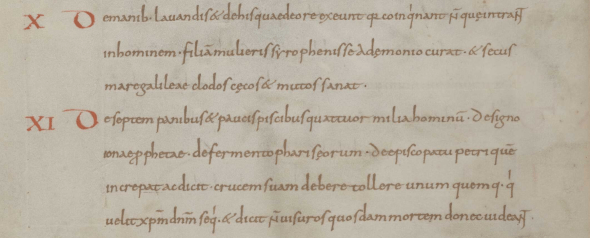 X De manib. lavandis & de his quae de ore exeunt qr coinq'nant n̄ quę intraɴ̄t
in hominem. filiā mulieris syrophenissę a demonio curat. & secus
mare galileae clodos cęcos & mutos sanat.
XI De septem panibus & paucis piscibus quattuor milia hominū. De signo
ionae ꝓphetae. de fermento pharisęorum. de episcopatu petri quē
increpat ac dicit. crucem suam debere tollere unum quemq. q'
velit xp̄m dn̄m seq'. & dicit n̄ visuros quosdam mortem donec videaɴ̄t.